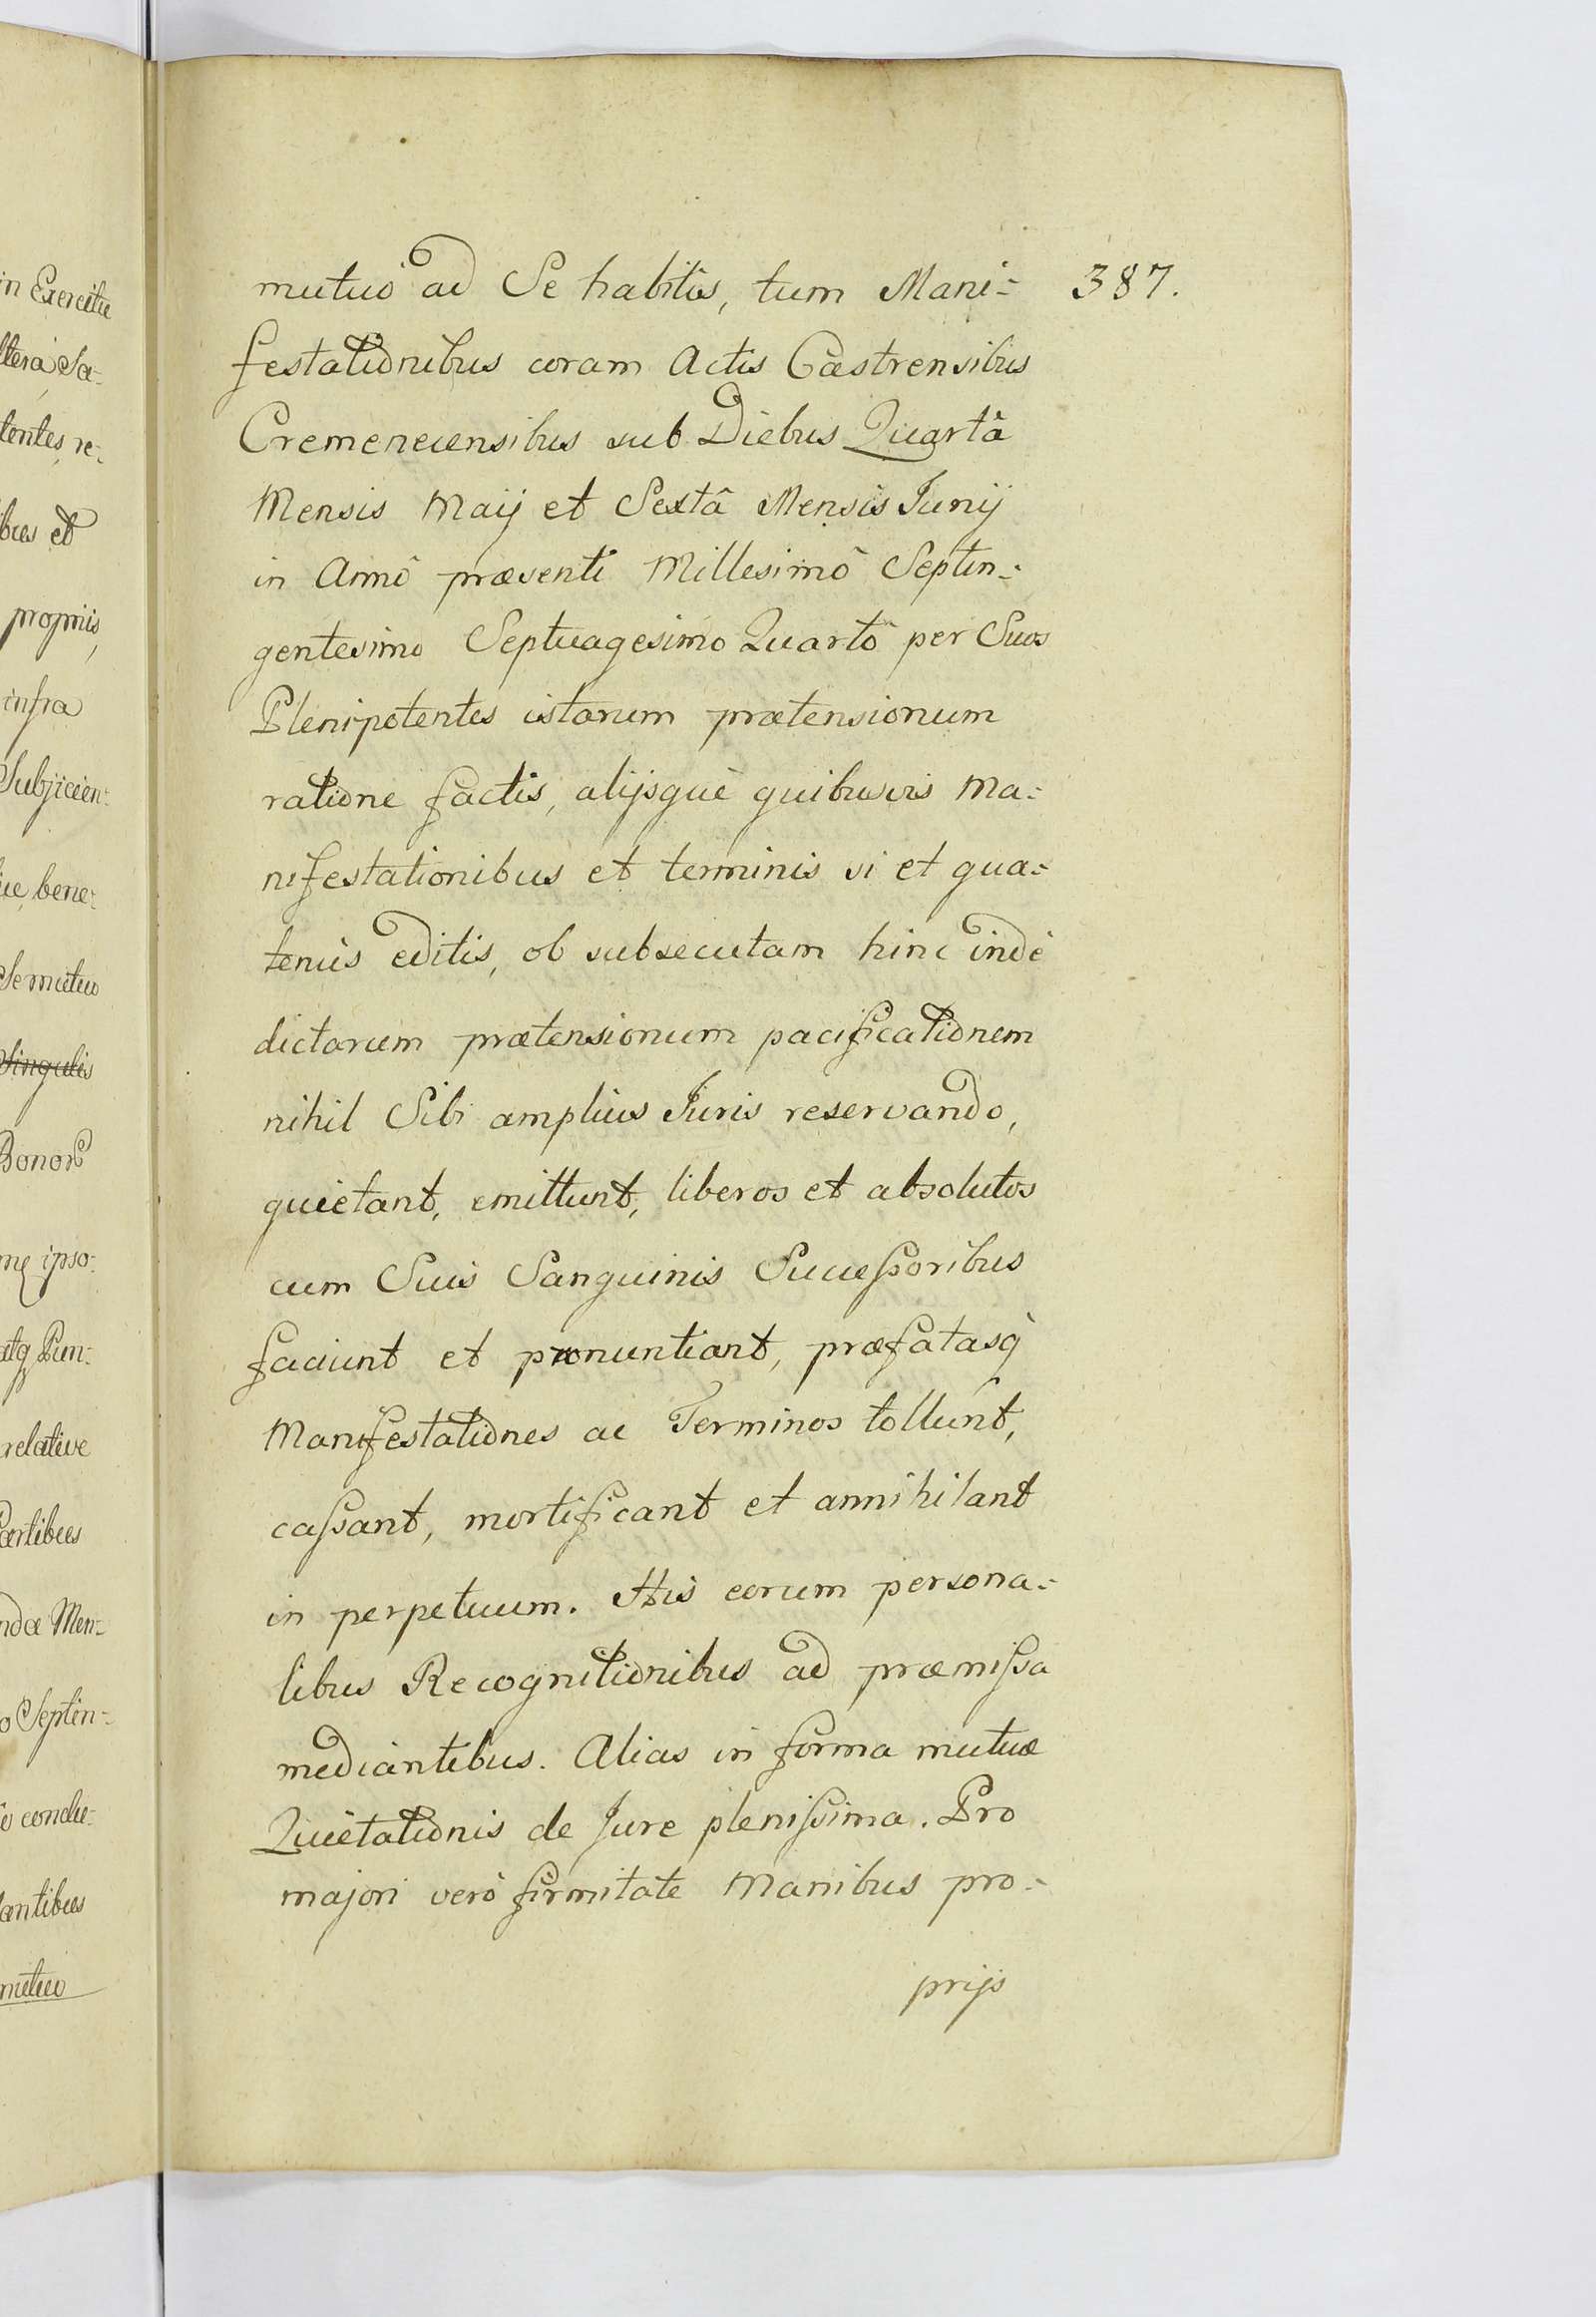 in Exercitu
ltera Sa-
tentes re-
ibus et
propriis,
infra
Subjicien-
bene-
Se mutuo
Singulis
Bonor
ipso-
atq Pun-
relative
Partibus
nda Men-
o Septin-
conclu-
antibus
mutuo
mutuò ad Se habitis, tum Mani= 387.
festationibus coram Actis Castrensibus
Cremenecensibus sub Diebus Quartâ
Mensis Maij et Sextâ Mensis Junij
in Annô præsenti Millesimô Septin=
gentesimo Septuagesimo Quartô per Suos
Plenipotentes istarum prætensionum
ratione factis, alijsquè quibusvis Ma=
nifestationibus et terminis si et qua=
tenùs editis, ob subsecutam hinc indè
dictarum prætensionum pacificationem
nihil Sibi ampliùs Juris reservando,
quietant, emittunt, liberos et absolutos
cum Suis Sanguinis Successoribus
faciunt et pronuntiant, præfatasq̀
Manifestationes ac Terminos tollunt,
cassant, mortificant et annihilant
in perpetuum. His eorum persona=
libus Recognitionibus ad præmissa
mediantibus. Alias in forma mutuæ
Quietationis de Jure plenissima. Pro
majori verò firmitate Manibus pro=
prijs